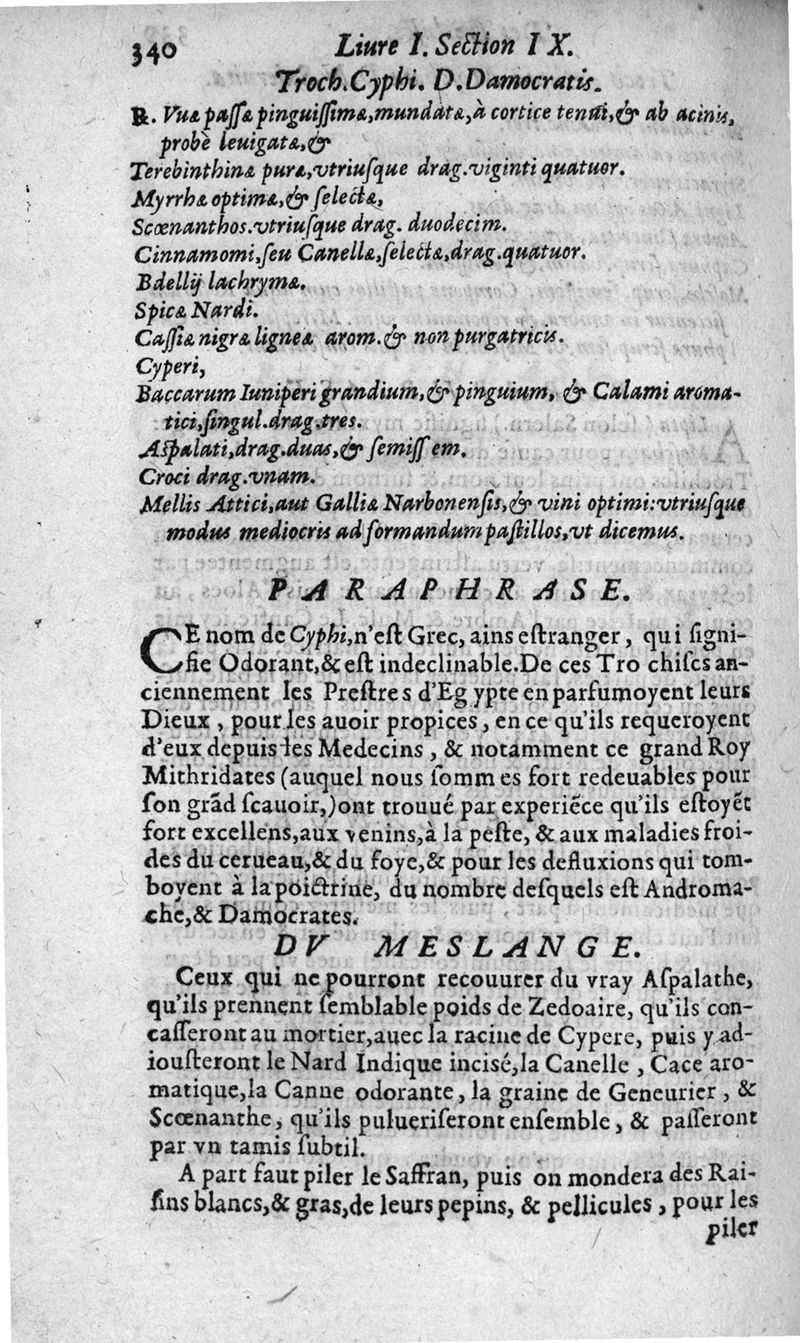 340 Liure I. Section I X.
Troch.Cyphi. D.Damocratis.
℞. Vuæ passæ pinguissimæ,mundatæ,à cortice tenui,& ab acinis,
probè leuigatæ,&
Terebinthinæ puræ,vtriusque drag.viginti quatuor.
Myrrhæ optimæ,& selectæ,
Scœnanthos.vtriusque drag. duodecim.
Cinnamomi,seu Canellæ,selectæ,drag.quatuor.
Bdellij lachrymæ.
Spicæ Nardi.
Cassiæ nigræ ligneæ arom.& non purgatricis.
Cyperi,
Baccarum Iuniperi grandium,& pinguium, & Calami aroma-
tici,singul.drag.tres.
Aspalati,drag.duas,& semissem.
Croci drag.vnam.
Mellis Attici,aut Galliæ Narbonensis,& vini optimi:vtriusque
modus mediocris ad formandum pastillos,vt dicemus.
P A R A P H R A S E.
CE nom de Cyphi,n'est Grec, ains estranger, qui signi-
fie Odorant,& est indeclinable.De ces Tro chiscs an-
ciennement les Prestres d'Eg ypte en parfumoyent leurs
Dieux , pour les auoir propices, en ce qu'ils requeroyent
d'eux depuis les Medecins , & notamment ce grand Roy
Mithridates (auquel nous somm es fort redeuables pour
son grãd scauoir,)ont trouué par experiẽce qu'ils estoyẽt
fort excellens,aux venins,à la peste, & aux maladies froi-
des du cerueau,& du foye,& pour les defluxions qui tom-
boyent à la poictrine, du nombre desquels est Androma-
che,& Damocrates.
DV MESLANGE.
Ceux qui ne pourront recouurer du vray Aspalathe,
qu'ils prennent semblable poids de Zedoaire, qu'ils con-
casseront au mortier,auec la racine de Cypere, puis y ad-
iousteront le Nard Indique incisé,la Canelle , Cace aro-
matique,la Canne odorante, la graine de Geneurier , &
Scœnanthe, qu'ils pulueriseront ensemble, & passeront
par vn tamis subtil.
A part faut piler le Saffran, puis on mondera des Rai-
sins blancs,& gras,de leurs pepins, & pellicules, pour les
piler